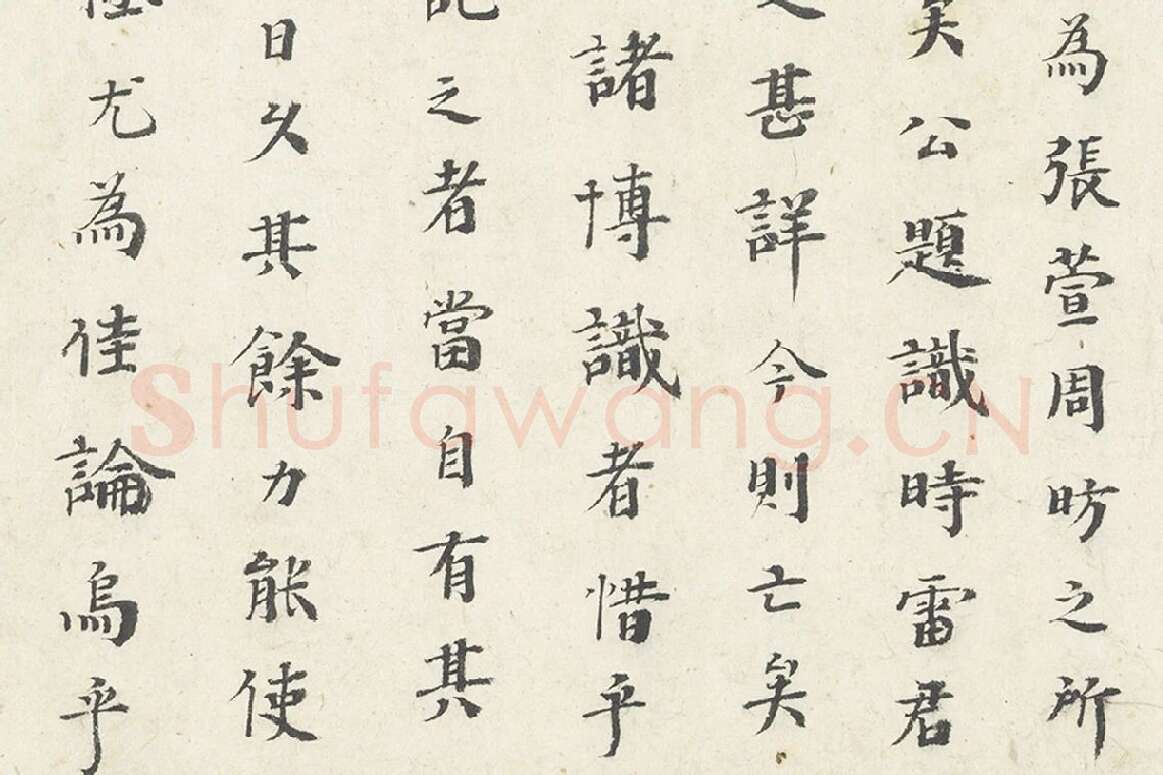 為張萱周昉之所
矣公題識時雷君
甚詳今則亡矣
諸博識者惜乎
之者當自有其
日久其餘力能使
尤為佳論烏乎
Shufawang.CN